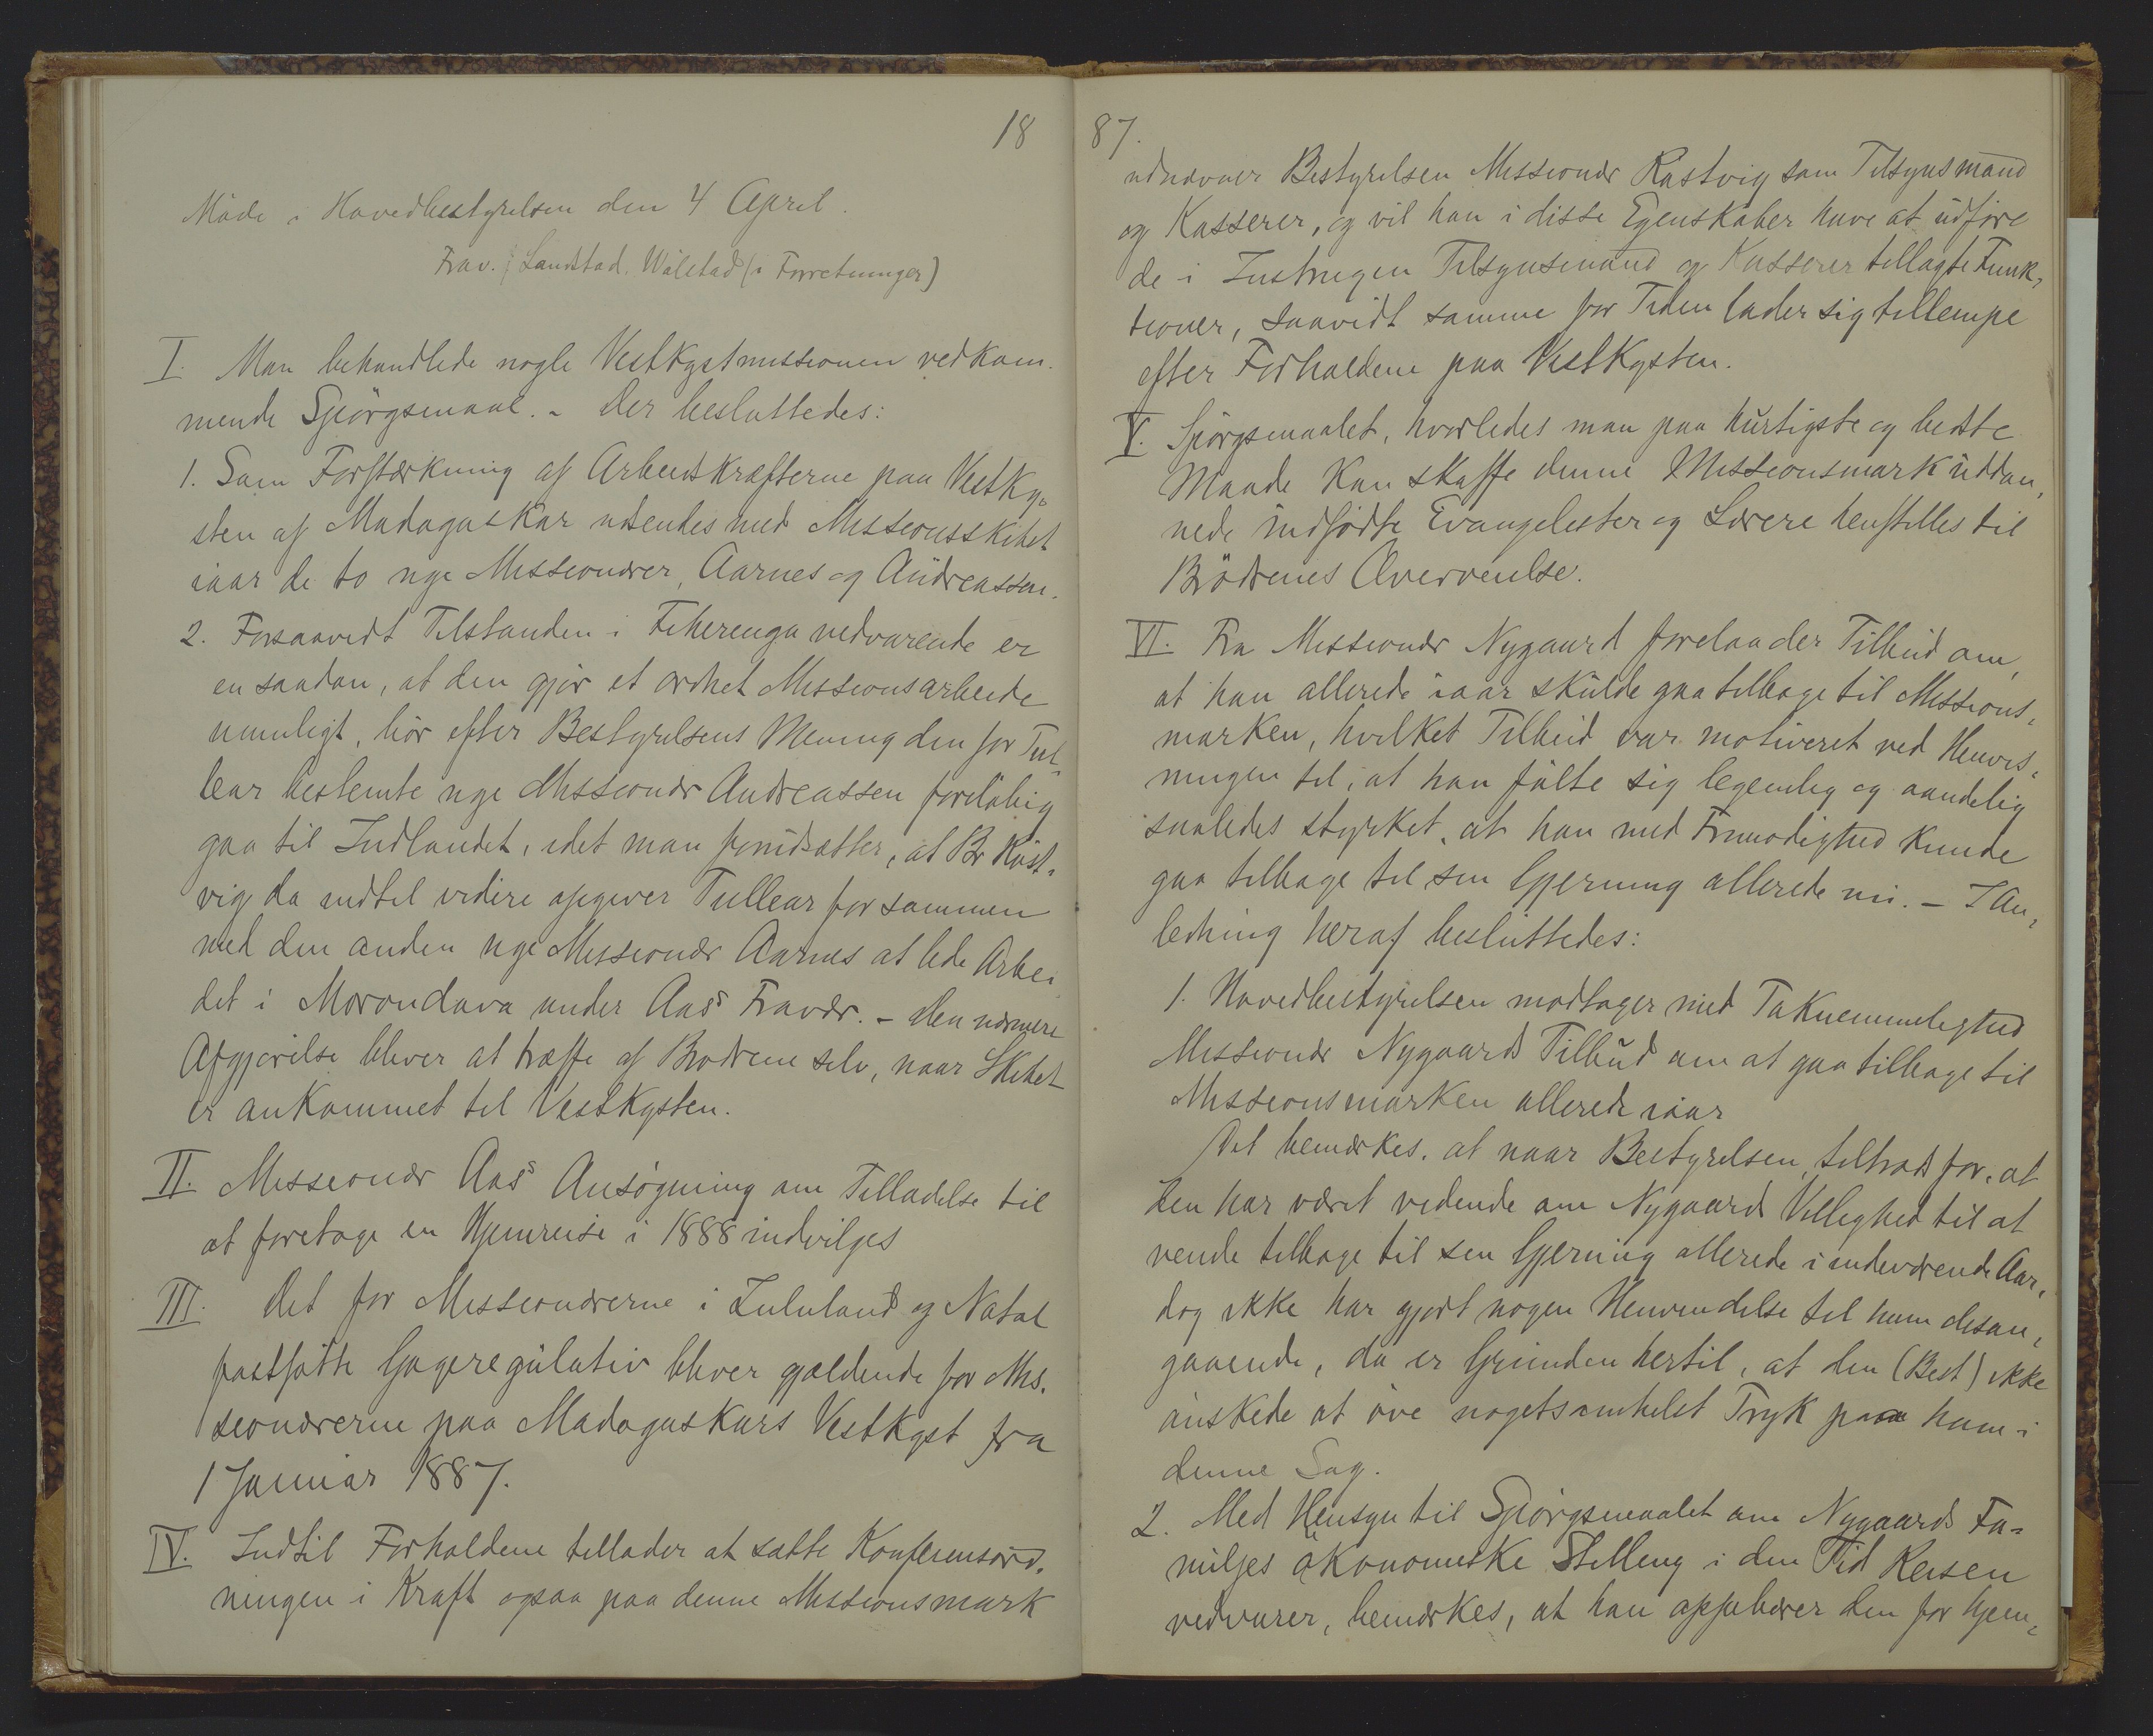 18
Møde i Hovedbestyrelsen den 4 April.
Frav. Landstad. Wålstad (i Forretninger)
I. Man behandlede nogle Vestkystmissionen vedkom-
mende Spörgsmaal. - Der besluttedes:
1. Som Forstærkning af Arbeidskræfterne paa Vestky-
sten af Madagaskar udsendes med Missionsskibet
iaar de to nye Missionærer, Aarnes og Andreassen.
2. Forsaavidt Tilstanden i Fiherenga vedvarende er
en saadan, at den gjør et ordnet Missionsarbeide
umuligt, bör efter Bestyrelsens Mening den for Tul-
lear bestemte nye Missionær Andreassen foreløbig
gaa til Indlandet, idet man forudsætter, at Br Röst-
vig da indtil videre opgiver Tullear for sammen
med den anden nye Missionær Aarnes at lede Arbei
det i Morondava under Aas's Fravær. - Den nærmere
Afgjørelse bliver at træffe af Brødrene selv, naar Skibet
er ankommet til Vestkysten.
II. Missionær Aas's Ansøgning om Tilladelse til
at foretage en Hjemreise i 1888 indvilges
III. Det for Missionærerne i Zululand og Natal
fastsatte Gageregulativ bliver gjældende for Mis-
sionærerne paa Madagaskars Vestkyst fra
1 Januar 1887.
IV. Indtil Forholdene tillader at sætte Konferensord-
ningen i Kraft ogsaa paa denne Missionsmark
87.
udnævner Bestyrelsen Missionær Røstvig som Tilsynsmand
og Kasserer, og vil han i disse Egenskaber have at udføre
de i Instruxen Tilsynsmand og Kasserer tillagte Funk-
tioner, saavidt samme for Tiden lader sig tillempe
efter Forholdene paa Vestkysten.
V. Spörgsmaalet, hvorledes man paa hurtigste og bedste
Maade kan skaffe denne Missionsmark uddan-
nede indfødte Evangelister og Lærere henstilles til
Brødrenes Overveielse.
VI. Fra Missionær Nygaard forelaa der Tilbud om,
at han allerede iaar skulde gaa tilbage til Missions-
marken, hvilket Tilbud var motiveret ved Henvis-
ningen til, at han følte sig legemlig og aandelig
saaledes styrket, at han med Frimodighed kunde
gaa tilbage til sin Gjerning allerede nu. - I An-
ledning heraf besluttedes:
1. Hovedbestyrelsen modtager med Taknemmelighed
Missionær Nygaards Tilbud om at gaa tilbage til
Missionsmarken allerede iaar
Det bemærkes, at naar Bestyrelsen, tiltrods for, at
den har været vidende om Nygaards Villighed til at
vende tilbage til sin Gjerning allerede i indeværende Aar,
dog ikke har gjort nogen Henvendelse til ham desan-
gaaende, da er Grunden hertil, at den (Best) ikke
ønskede at øve nogetsomhelst Tryk paa ham i
denne Sag.
2. Med Hensyn til Spörgsmaalet om Nygaards Fa-
miljes økonomiske Stilling i den Tid Reisen
vedvarer, bemærkes, at han oppebærer den for hjem-